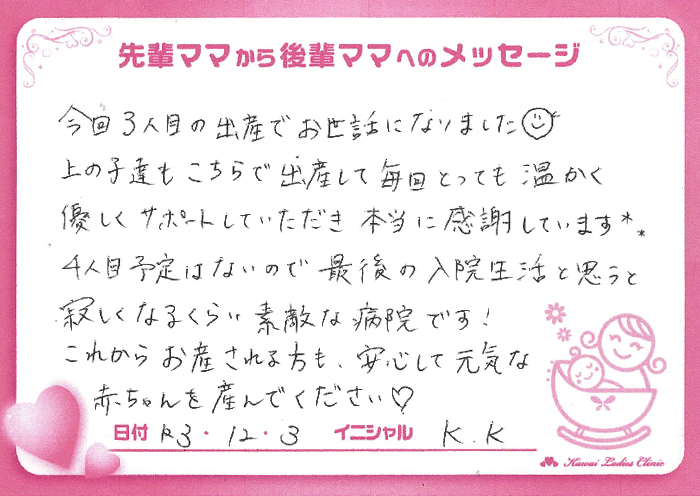 先輩ママから後輩ママへのメッセージ
今回3人目の出産でお世話になりました
上の子達もこちらで出産して毎回とっても温かく
優しくサポートしていただき本当に感謝しています**
4人目予定はないので最後の入院生活と思うと
寂しくなるくらい素敵な病院です!
これからお産される方も、安心して元気な
赤ちゃんを産んでください♡
日付 R3・12・3 イニシャル K.K
Kawai Ladies Clinic